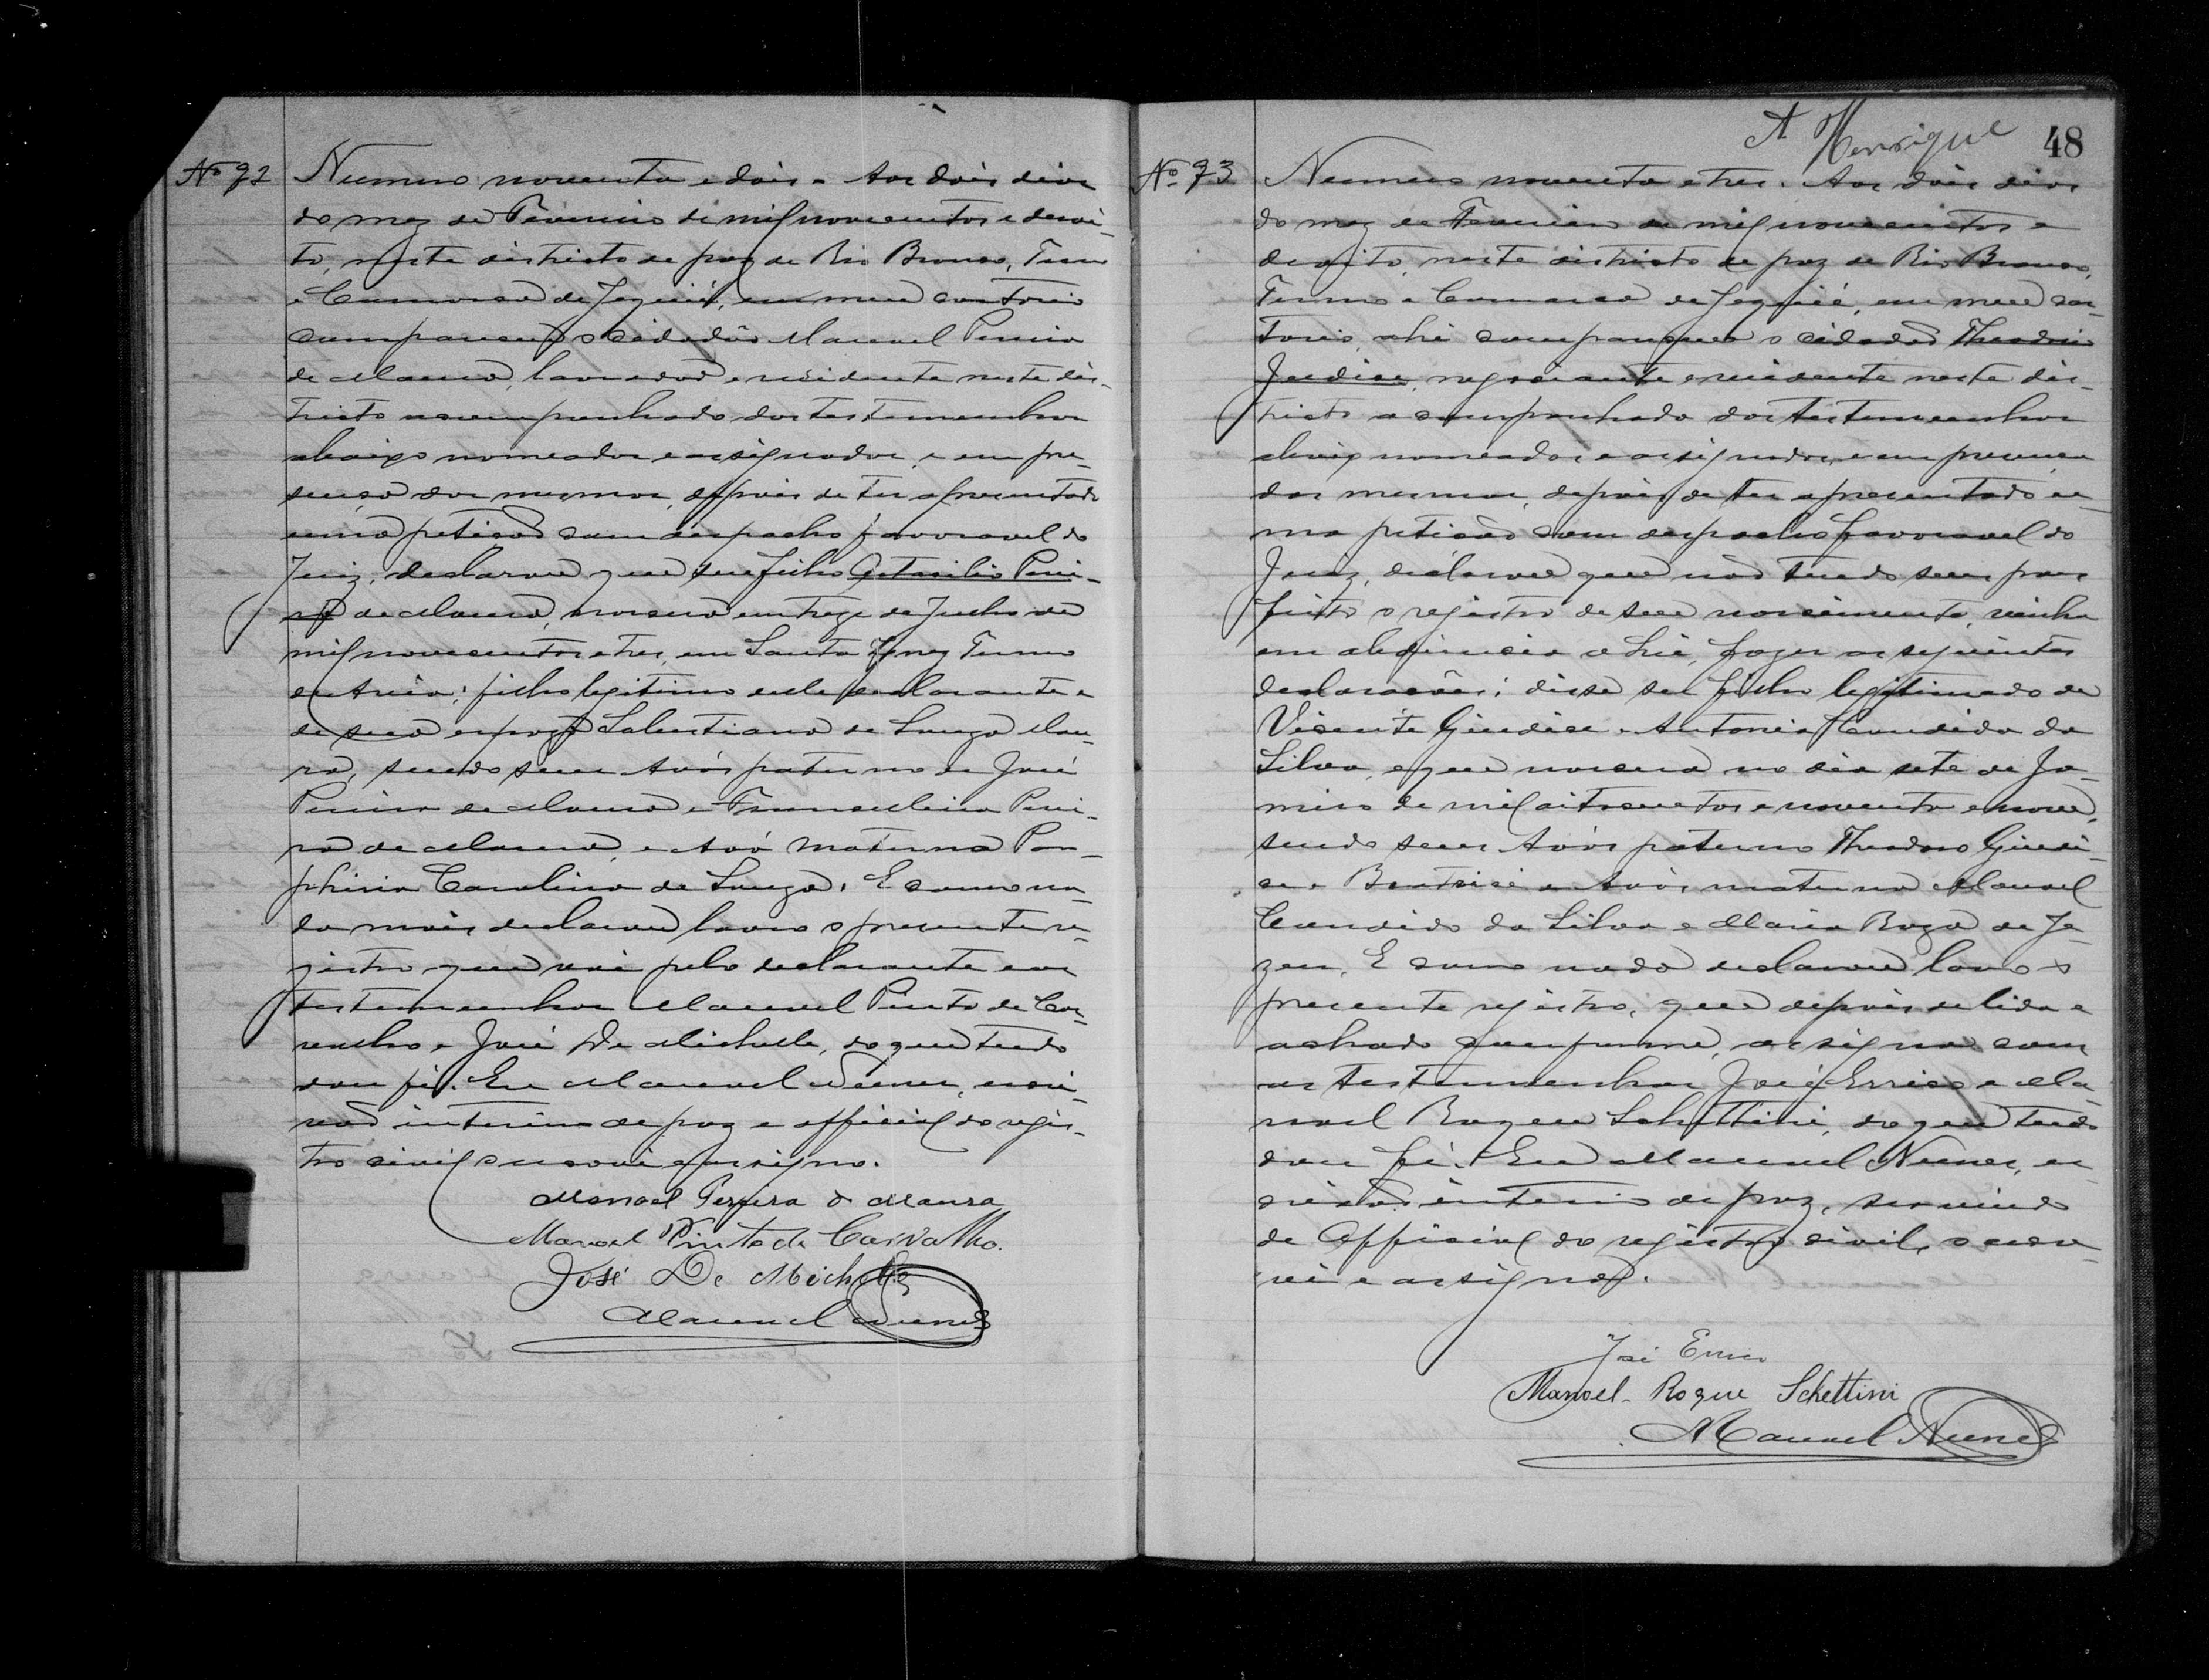 Nº 92
Numero noventa e dois. Aos dois dias
do mez de Fevereiro de mil novecentos e desoi-
to, neste districto de paz de Rio Branco, Termo
e Comarca de Jequié, em meu cartorio
compareceu o cidadão Manoel Pereira
de Moura, lavrador e residente neste dis-
tricto acompanhado das testemunhas
abaixo nomeadas e assignadas, e em pre-
sença das mesmas, depois de ter apresentado
uma petição com despacho favoravel do
Juiz, declarou que seu filho Octacilio Perei-
ra de Moura, nasceu em treze de Julho de
mil novecentos e tres, em Santa Ignez Termo
de Areia; filho legitimo delle declarante e
de sua espoza Salustiana de Souza Mou-
ra, sendo seus Avós paternos José
Pereira de Moura e Francellina Perei-
ra de Moura, e Avó materna Por-
phiria Carolina de Souza. E como na-
da mais declarou lavro o presente re-
gistro que vai pelo declarante e as
testemunhas Manoel Pinto de Car-
valho e José De Michelle, do que tudo
dou fé. Eu Manoel Nunes, escri-
vão interino de paz e official do regis-
tro civil o escrevi e assigno.
Manoel Pereira d Moura
Manoel Pinto de Carvalho.
José De Michelle
Manoel Nunes
A Henrique
48
Nº 93
Numero noventa e tres. Aos dois dias
do mez de Fevereiro de mil novecentos e
desoito, neste districto de paz de Rio Branco,
Termo e Comarca de Jequié, em meu car-
torio, ahi compareceu o cidadão Theodoro
Judice, negociante e residente neste dis-
tricto acompanhado das testemunhas
abaixo nomeadas e assignadas, e em presença
das mesmas, depois de ter apresentado u-
ma petição com despacho favoravel do
Juiz, declarou que não tendo seus paes
feito o registro de seu nascimento, vinha
em obediencia a Lei, fazer as seguintes
declarações: disse ser filho legitimado de
Vicente Giudice e Antonia Candida da
Silva, e que nasceu no dia sete de Ja-
neiro de mil oitocentos e noventa e nove,
sendo seus Avós paternos Theodoro Giudi-
ce e Beatrice e Avós maternos Manoel
Candido da Silva e Maria Roza de Je-
zus. E como nada declarou lavro o
presente registro, que depois de lido e
achado conforme, assigna com
as testemunhas José Errico e Ma-
noel Roque Schettini, do que tudo
dou fé. Eu Manoel Nunes, es-
crivão interino de paz, servindo
de Official do registro civil, o escre-
vi e assigno.
José Errico
Manoel Roque Schettini
Manoel Nunes